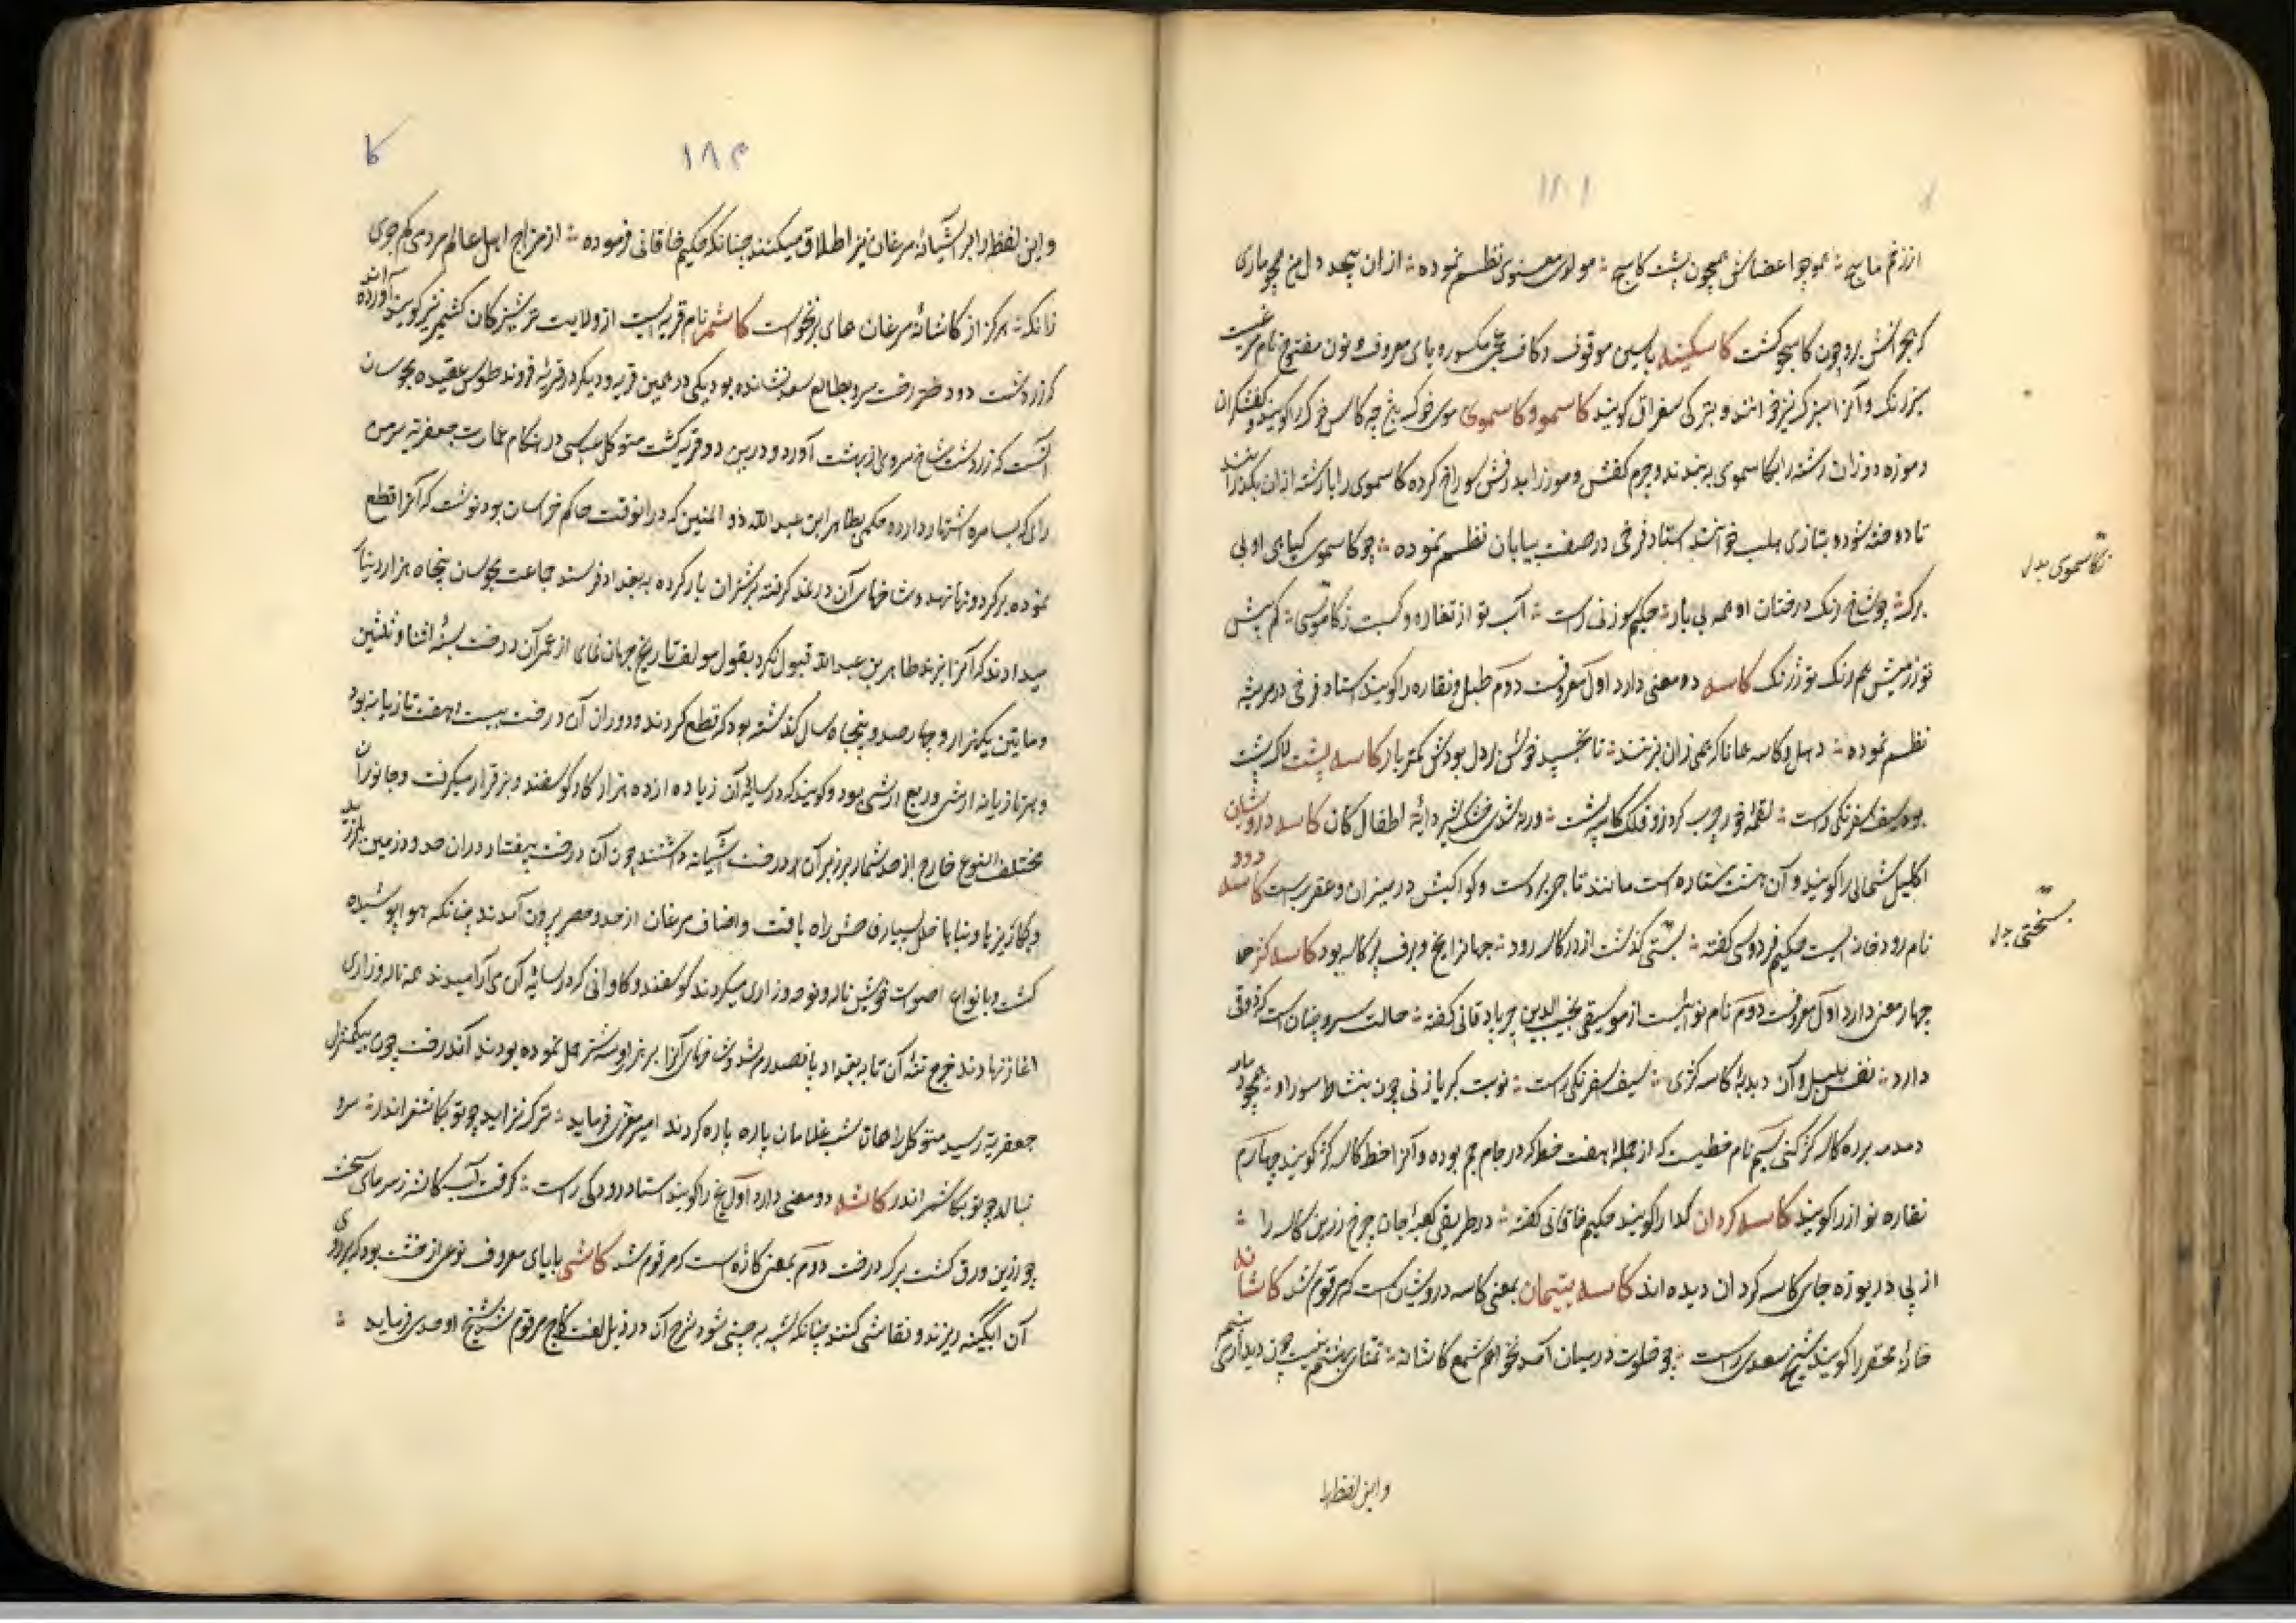 ۱۸۱
از زخم ماسیح ؞ همو چو اعضاش همچون پشت کاسج ؞ مولوی معنوی نظم نموده ؞ از آن پیچد دل من همچو ماری
که بجوانش بر و چون کاسجو کشت کاسکینه با سین موقوف و کاف عجمی مکسور و یای معروف و نون مفتوح نام مرغیست
سبزرنک و آنرا سبزک نیز خوانند و بترکی سغراق کویند کاسمو و کاسموی موی خوک چه کاس خوک را کویند و کفشکران
و موزه دوزان رشته را بکاسموی به بندند و چرم کفش و موزه را بدرفش سوراخ کرده کاسموی را با رشته از آن بکذرانند
تا دوخته شود و بتازی هلب خوانند استاد فرخی در صفت بیابان نظم نموده ؞ چو کاسموی کیاهای او بی
برک ؞ چو شاخ رنک درختان او همه بی بار ؞ حکیم سوزنی راست ؞
تو زرمیش هم رنک تو ژرنک کاسه دو معنی دارد اول معروفست دوم طبل و نقاره را کویند استاد فرخی در مرثیه
نظم نموده ؞ دهل و کاسه همانا که همی زان نزنند ؞ تا بخسپد خوش و دل بودش کمتر بار کاسه پشت لاک پشت
بود سیف اسفرنکی راست ؞ لقمه خور چرب کرد زو فلک کاسه پشت ؞ ورنه شدی خشک شیر دایه اطفال کان کاسه درویشان
اکلیل شمالی را کویند و آن هشت ستاره است مانند تاجی پر است و کواکبش در میزان و عقربست کاسه رود
نام رودخانه ایست حکیم فردوسی کفته ؞ بسختی کذشت از در کاسه رود ؞ جهانرا یخ و برف بر کاسه بود کاسه کر
چهار معنی دارد اول معروفست دوم نام نوائیست از موسیقی نجیب الدین جربادقانی کفته ؞ حالت سرو چنان است که ذوقی
دارد ؞ نفس بلبل و آن دبدبهٔ کاسه کری ؞ سیف اسفرنکی راست ؞ نوبت کبریا زنی چون بنشاط سور او ؞ همچو
دمدمه برده کاسه کر کنی سیم نام خطیست که از جمله هفت خط که در جام جم بوده و آنرا خط کاسه کر کویند چهارم
نقاره نواز را کویند کاسه کردان کدا را کویند حکیم خاقانی کفته ؞ در طریق کعبهٔ جان چرخ زرین کاسه را ؞
از پی دریوزه جای کاسه کردان دیده اند کاسه یتیمان بمعنی کاسه درویشان است که مرقوم شد کاشانه
خانه محقر را کویند شیخ سعدی راست ؞ چو خلوت در میان آمد نخواهم شمع کاشانه ؞ تمنای بهشتم نیست چون دیدار می بینم
و این لفظ را
کاسموی بدل
بسختی بدل
۱۸۲
کا
و این لفظ را بر آشیانهٔ مرغان نیز اطلاق میکنند چنانکه حکیم خاقانی فرموده ؞ از مزاج اهل عالم مردمی کم جوی
زانکه ؞ هرکز از کاشانهٔ مرغان همای بر نخواست کاشمر نام قریه ایست از ولایت ترشیز که آن کشمیر نیز کویند آورده اند
که زردشت دو درخت سرو بطالع سعد نشانده بود یکی در همین قریه و دیکر در قریه فرومد طوس بعقیده مجوسان
آنست که زردشت شاخ سرو از بهشت آورد و درین دو قریه کشت متوکل عباسی در هنکام عمارت جعفریه سرمن
رای که بسامره اشتهار دارد حکمی بطاهر ابن عبد الله ذو الیمینین که در انوقت حاکم خراسان بود نوشت که آنرا قطع
نموده بر کردونها نهد و شاخهای آن در نمد کرفته بر شتران بار کرده به بغداد فرستد جماعت مجوسان پنجاه هزار دینار
میدادند که آنرا نبرند طاهر بن عبد الله قبول نکرد بقول مولف تاریخ جهان نمای از عمر آن درخت بسنهٔ اثنا و ثلثین
و مایتین یکهزار و چهارصد و پنجاه سال کذشته بود که قطع کردند و دوران آن درخت بیست و هفت تازیانه بود
و هر تازیانه ارشی و ربع ارشی بود و کویند که در سایه آن زیاده از ده هزار کاو و کوسفند و بز قرار میکرفت و جانوران
مختلف النوع خارج از حد شمار بر زبر آن درخت آشیانه داشتند چون آن درخت بیفتاد در آن حدود زمین بلرزید
و بکاریزها و بناها خلل بسیار فاحش راه یافت و اصناف مرغان از حد و حصر بیرون آمدند چنانکه هوا پوشیده
کشت و بانواع اصوات خویش ناله و نوحه و زاری میکردند کوسفند و کاوانی که در سایهٔ آن می آرامیدند همه ناله و زاری
آغاز نهادند خرج تنهٔ آن تا به بغداد پانصد درم شد و شاخهای آنرا بر هزار و سیصد شتر حمل نموده بودند آندرخت چون بیکمنزلی
جعفریه رسید متوکل را همان شب غلامان پاره پاره کردند امیر معزی فرماید ؞ ترک نزاید چو تو بکاشغر اندر ؞ سرو
نبالد چو تو بکاشمر اندر کاشه دو معنی دارد اول یخ را کویند استاد رودکی راست ؞ کرفت آب کاشه ز سرمای سخت
چو زرین ورق کشت برک درخت دوم بمعنی کازه است که مرقوم شد کاشی با یای معروف نوعی از خشت بود که بر روی
آن آبکینه ریزند و نقاشی کنند چنانکه شبیه به چینی شود شرح آن در ذیل لغت کاج مرقوم شد شیخ اوحدی فرماید ؞